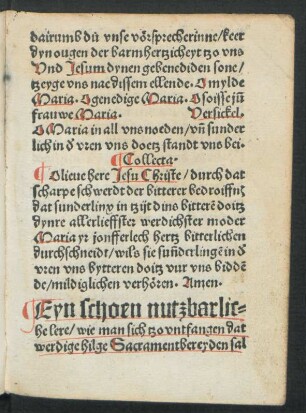 dairumb du vnse vörsprecherinne/keer
dyn ougen der barmhertzicheyt tzo vns
Vnd Jesum dynen gebenediden sone/
tzeyge vns nae dissem ellende. O mylde
Maria. O genedige Maria. O soisse jũ
frauwe Maria. Versickel.
O Maria in all vns noeden/vñ sunder
lich in d vren vns doetz standt vns bei.
Collecta.
O lieue here Jesu Christe/durch dat
scharpe schwerdt der bitterer bedroiffnz
dat sunderlinx in tzijt dins bitterē doitz
dynre allerlieffster werdichster moder
Maria yr jonfferlech hertz bitterlichen
durchschneidt/wils sie sunderlingen in d
vren vns bytteren doitz vur vns biddē
de/mildiglichen verhören. Amen.
Eyn schoen nutzbarlic-
he lere/wie man sich tzo vntfangen dat
werdige hilge Sacrament bereyden sal